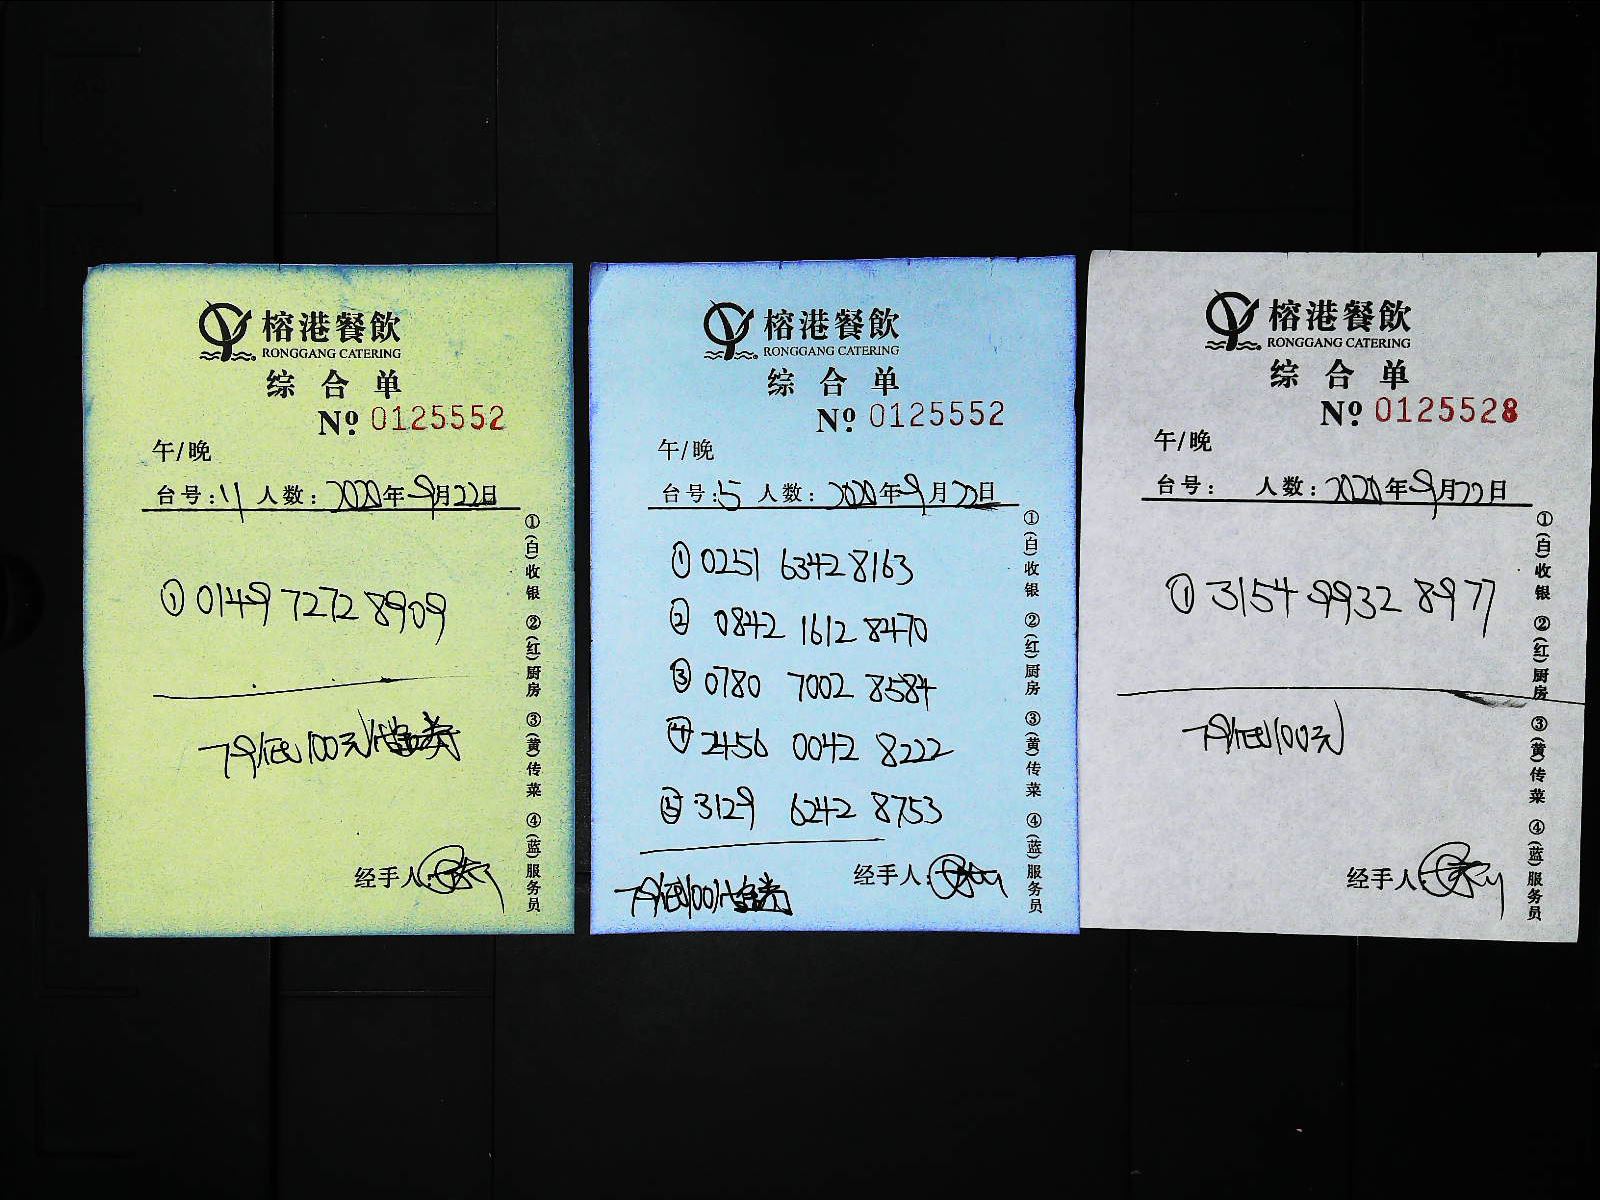 榕港餐飲
RONGGANG CATERING
综合单
№ 0125552
午/晚
台号:11 人数: 2020年9月22日
① 0149 7272 8909
79抵100元代金券
经手人:
①(白)收银 ②(红)厨房 ③(黄)传菜 ④(蓝)服务员
榕港餐飲
RONGGANG CATERING
综合单
№ 0125552
午/晚
台号:5 人数: 2020年9月22日
① 0251 6342 8163
② 0842 1612 8470
③ 0780 7002 8584
④ 2456 0042 8222
⑤ 3129 6242 8753
79抵100代金券
经手人:
①(白)收银 ②(红)厨房 ③(黄)传菜 ④(蓝)服务员
榕港餐飲
RONGGANG CATERING
综合单
№ 0125528
午/晚
台号: 人数: 2020年9月22日
① 3154 9932 8977
79抵100元
经手人:
①(白)收银 ②(红)厨房 ③(黄)传菜 ④(蓝)服务员